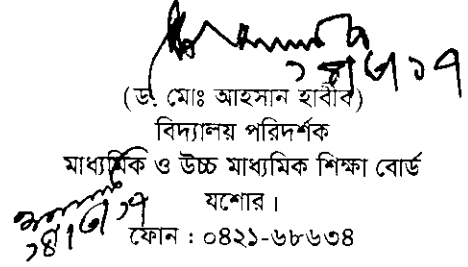 (ড. মোঃ আহসান হাবীব)
বিদ্যালয় পরিদর্শক
মাধ্যমিক ও উচ্চ মাধ্যমিক শিক্ষা বোর্ড
যশোর।
ফোন : ০৪২১-৬৮৬৩৪